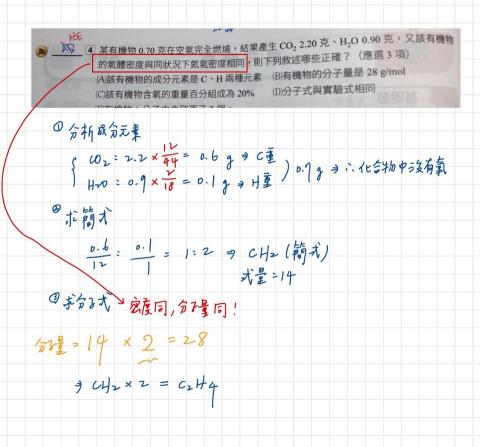 ABE
4 某有機物 0.70 克在空氣完全燃燒，結果產生 CO2 2.20 克、H2O 0.90 克，又該有機物
的氣體密度與同狀況下氮氣密度相同，則下列敘述哪些正確？（應選 3 項）
(A)該有機物的成分元素是 C、H 兩種元素 (B)有機物的分子量是 28 g/mol
(C)該有機物含氧的重量百分組成為 20% (D)分子式與實驗式相同
① 分析成分元素
CO2：2.2 × 12/44 = 0.6 g → C重
H2O：0.9 × 2/18 = 0.1 g → H重
0.7 g → ∴化合物中沒有氧
② 求簡式
0.6/12 : 0.1/1 = 1:2 ⇒ CH2 (簡式)
式量=14
③ 求分子式 密度同，分子量同！
分子量 = 14 × 2 = 28
⇒ CH2 × 2 = C2H4